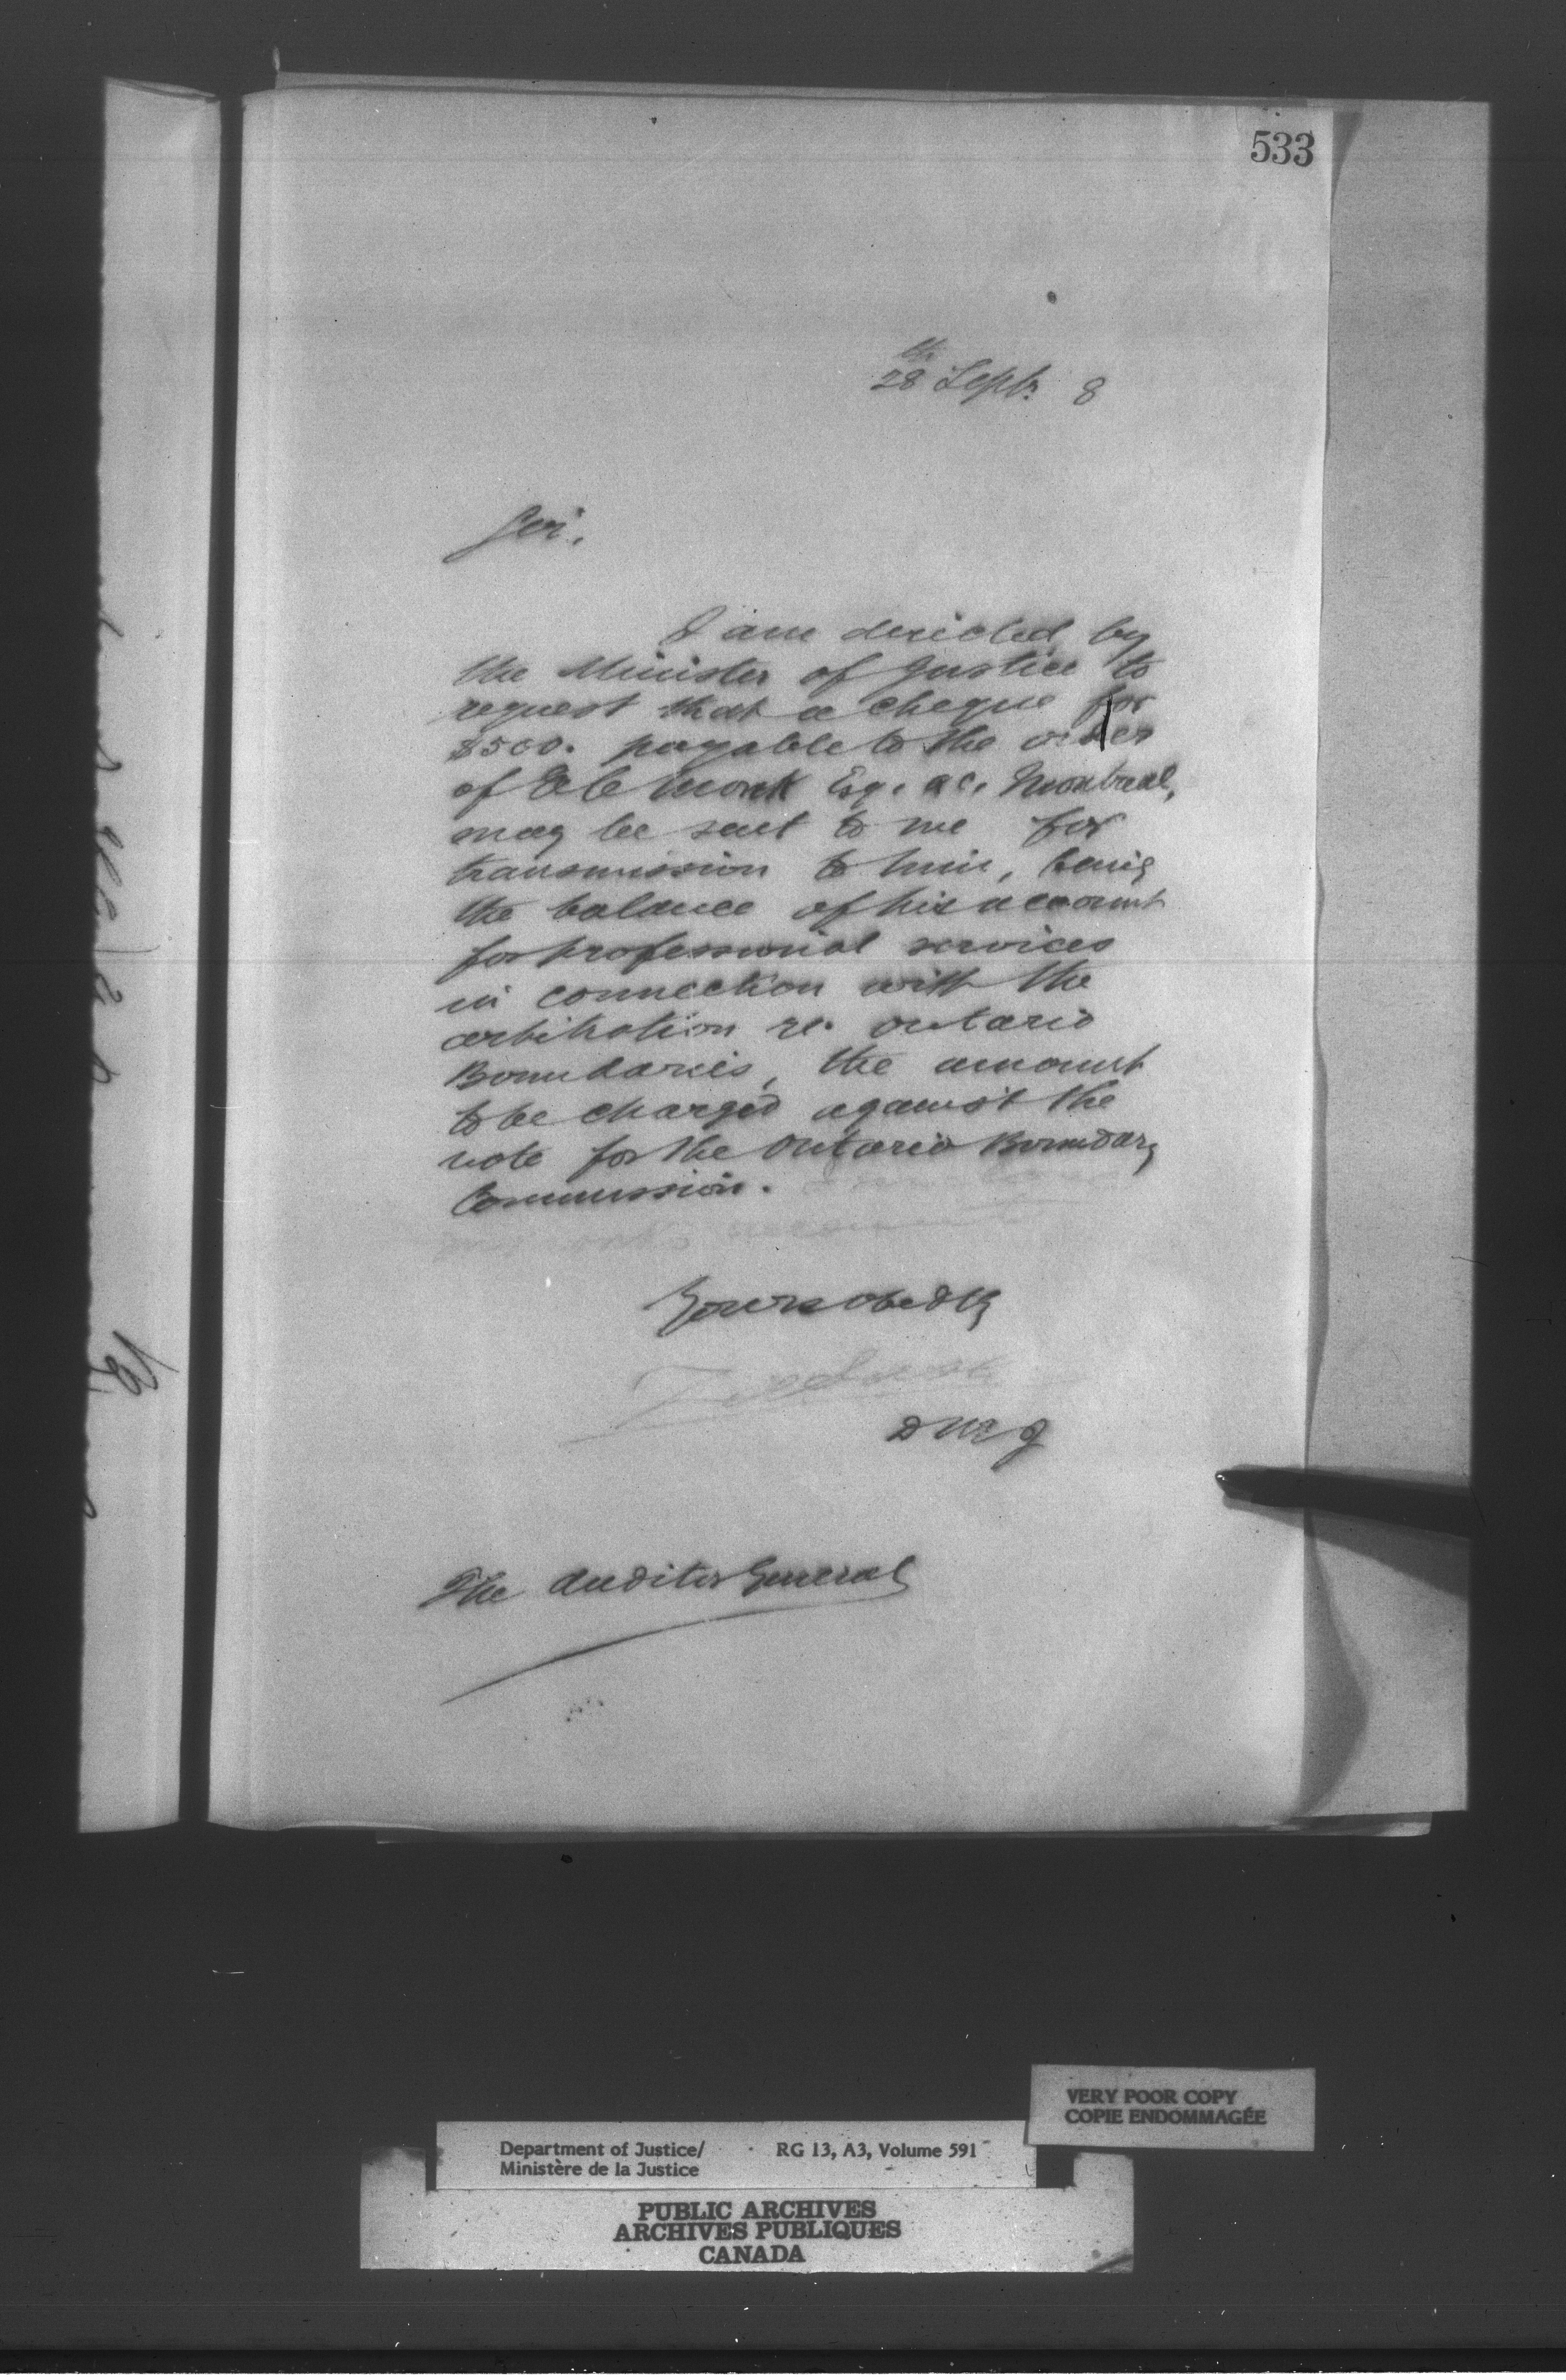 533
28th Septr. 8
Sir,
I am directed by
the Minister of Justice to
request that a cheque for
$500. payable to the order
of E C Monk Esq. Q.C. Montreal,
may be sent to me for
transmission to him, being
the balance of his account
for professional services
in connection with the
arbitration re. Ontario
Boundaries, the amount
to be charged against the
vote for the Ontario Boundary
Commission.
Yours obedtly
D M J
The Auditor General
VERY POOR COPY
COPIE ENDOMMAGÉE
Department of Justice/ RG 13, A3, Volume 591
Ministère de la Justice
PUBLIC ARCHIVES
ARCHIVES PUBLIQUES
CANADA